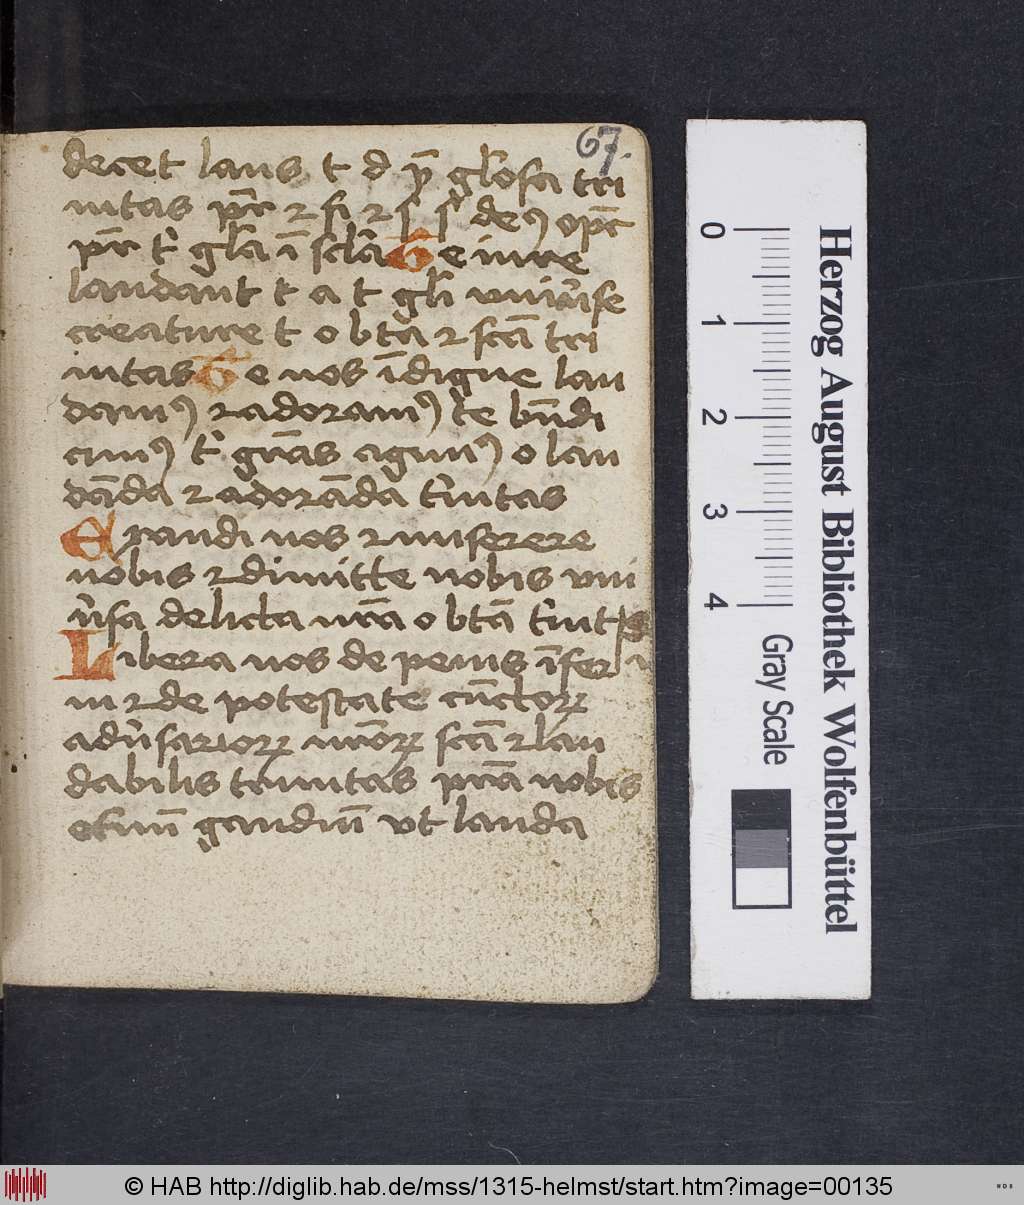 67.
decet laus t d p̄ gl'osa tri
nitas pr̄c ⁊ fi ⁊ s s deꝰ op̄c
pr̄c t' gl'a ī scl'a Te iure
laudant t a t gl'i vniu'se
creature t o btā ⁊ scā tri
nitas Te nos īdigne lau
damꝰ ⁊ adoramꝰ te bn̄di
cimꝰ t' gr̄as agimꝰ o lau
dāda ⁊ adorāda t'nitas
Exaudi nos ⁊ miserere
nobis ⁊ dimitte nobis vni
u'sa delicta nr̄a o btā t'nitas
Libera nos de penis īfer
ni ⁊ de potestate cūctoꝝ
adu'sarioꝝ nr̄oꝝ scā ⁊ lau
dabilis trinitas pr̄ta nobis
et'nū gaudiū vt lauda
Herzog August Bibliothek Wolfenbüttel
0 1 2 3 4
Gray Scale
© HAB http://diglib.hab.de/mss/1315-helmst/start.htm?image=00135